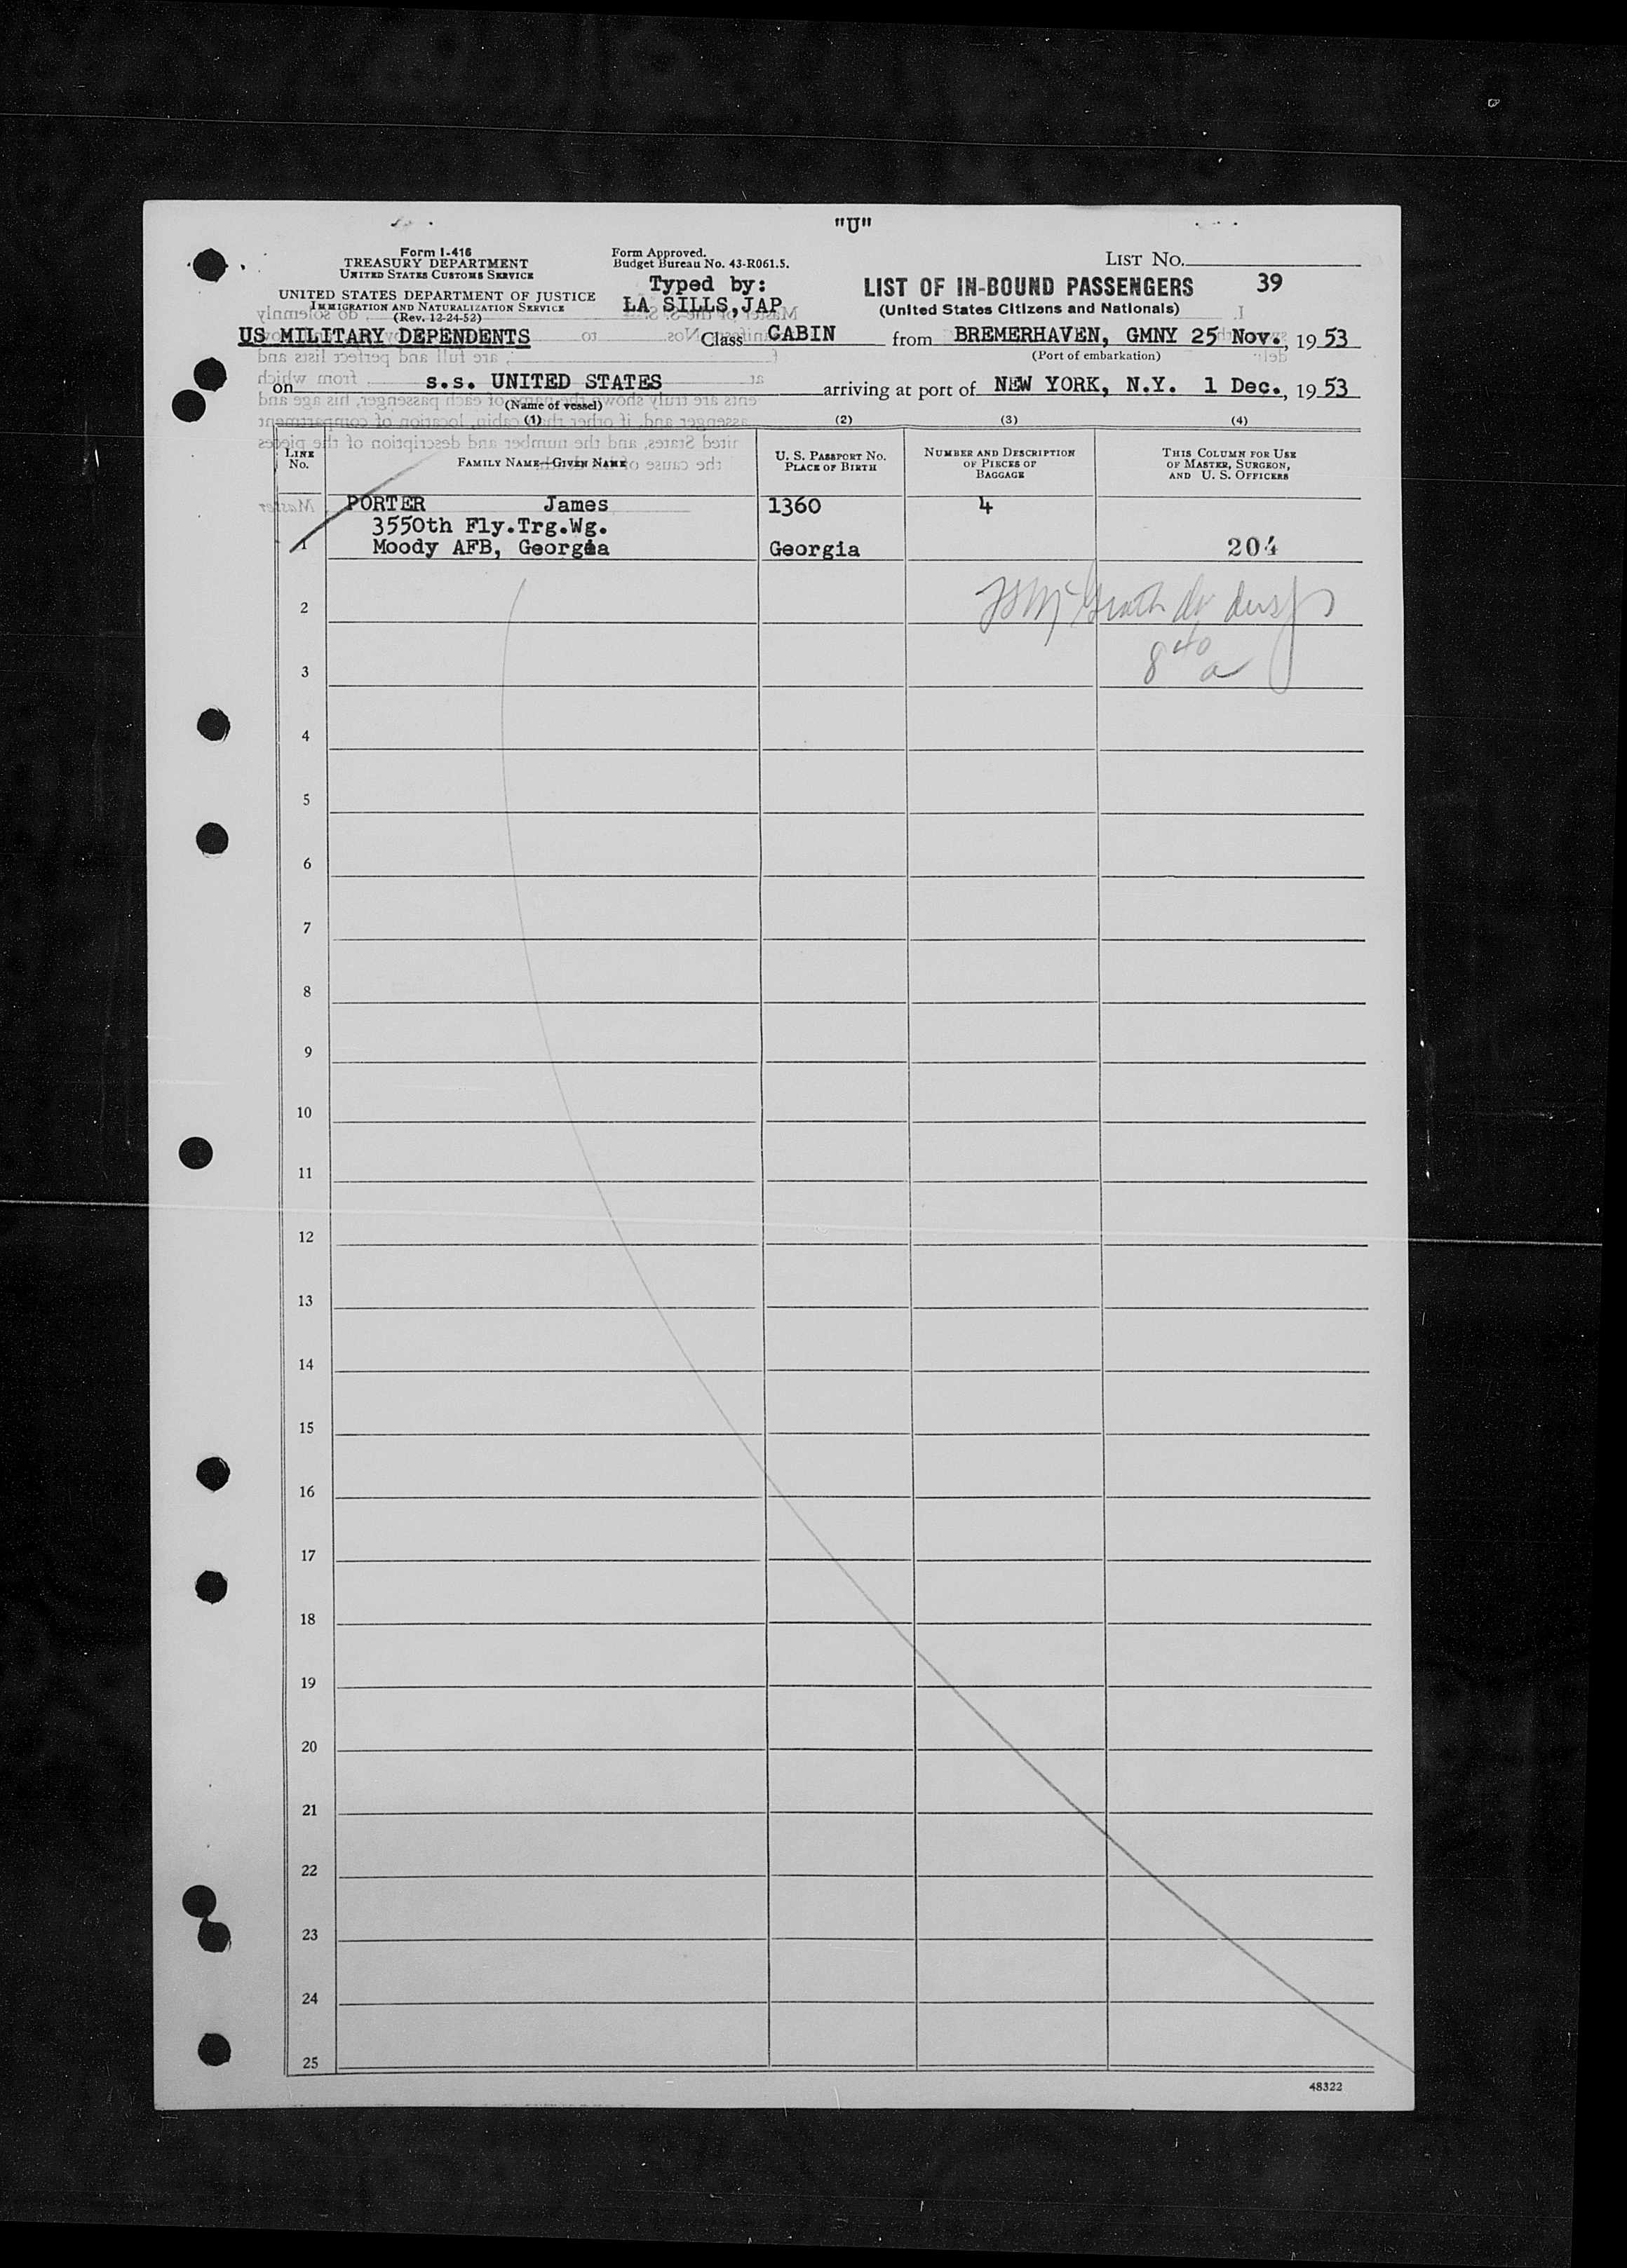 "U"
Form I-416
TREASURY DEPARTMENT
UNITED STATES CUSTOMS SERVICE
UNITED STATES DEPARTMENT OF JUSTICE
IMMIGRATION AND NATURALIZATION SERVICE
(Rev. 12-24-52)
Form Approved.
Budget Bureau No. 43-R061.5.
Typed by:
LA SILLS,JAP
LIST NO.
39
LIST OF IN-BOUND PASSENGERS
(United States Citizens and Nationals)
US MILITARY DEPENDENTS Class CABIN from BREMERHAVEN, GMNY 25 Nov., 1953
(Port of embarkation)
on s.s. UNITED STATES arriving at port of NEW YORK, N.Y. 1 Dec., 1953
(Name of vessel)
(1) (2) (3) (4)
LINE No.
FAMILY NAME—GIVEN NAME
U. S. PASSPORT NO.
PLACE OF BIRTH
NUMBER AND DESCRIPTION
OF PIECES OF
BAGGAGE
THIS COLUMN FOR USE
OF MASTER, SURGEON,
AND U. S. OFFICERS
PORTER James 1360 4
3550th Fly.Trg.Wg.
1 Moody AFB, Georgia Georgia 204
2
8 40 a
3
4
5
6
7
8
9
10
11
12
13
14
15
16
17
18
19
20
21
22
23
24
25
48322